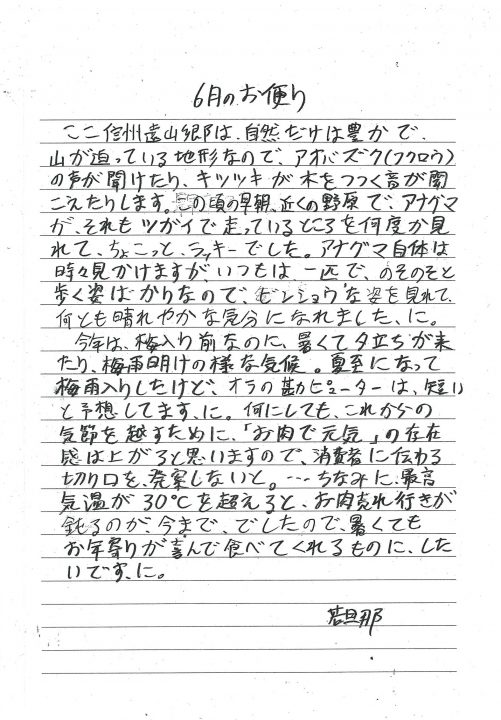 6月のお便り
ここ信州遠山郷は、自然だけは豊かで、
山が迫っている地形なので、アオバズク(フクロウ)
の声が聞けたり、キツツキが木をつつく音が聞
こえたりします。の頃の早朝、近くの野原で、アナグマ
が、それもツガイで走っているところを何度か見
れて、ちょこっと、ラッキーでした。アナグマ自体は
時々見かけますが、いつもは一匹で、のそのそと
歩く姿ばかりなので、ビンショウな姿を見れて、
何とも晴れやかな気分になれました、に。
今年は、梅入り前なのに、暑くて夕立ちが来
たり、梅雨明けの様な気候。夏至になって
梅雨入りしたけど、オラの勘ピューターは、短い
と予想してます、に。何にしても、これからの
気節を越すために、「お肉で元気」の存在
感は上がると思いますので、消費者に伝わる
切り口を、発案しないと。…ちなみに、最高
気温が30℃を超えると、お肉売れ行きが
鈍るのが、今まで、でしたので、暑くても
お年寄りが喜んで食べてくれるものに、した
いです、に。
若旦那